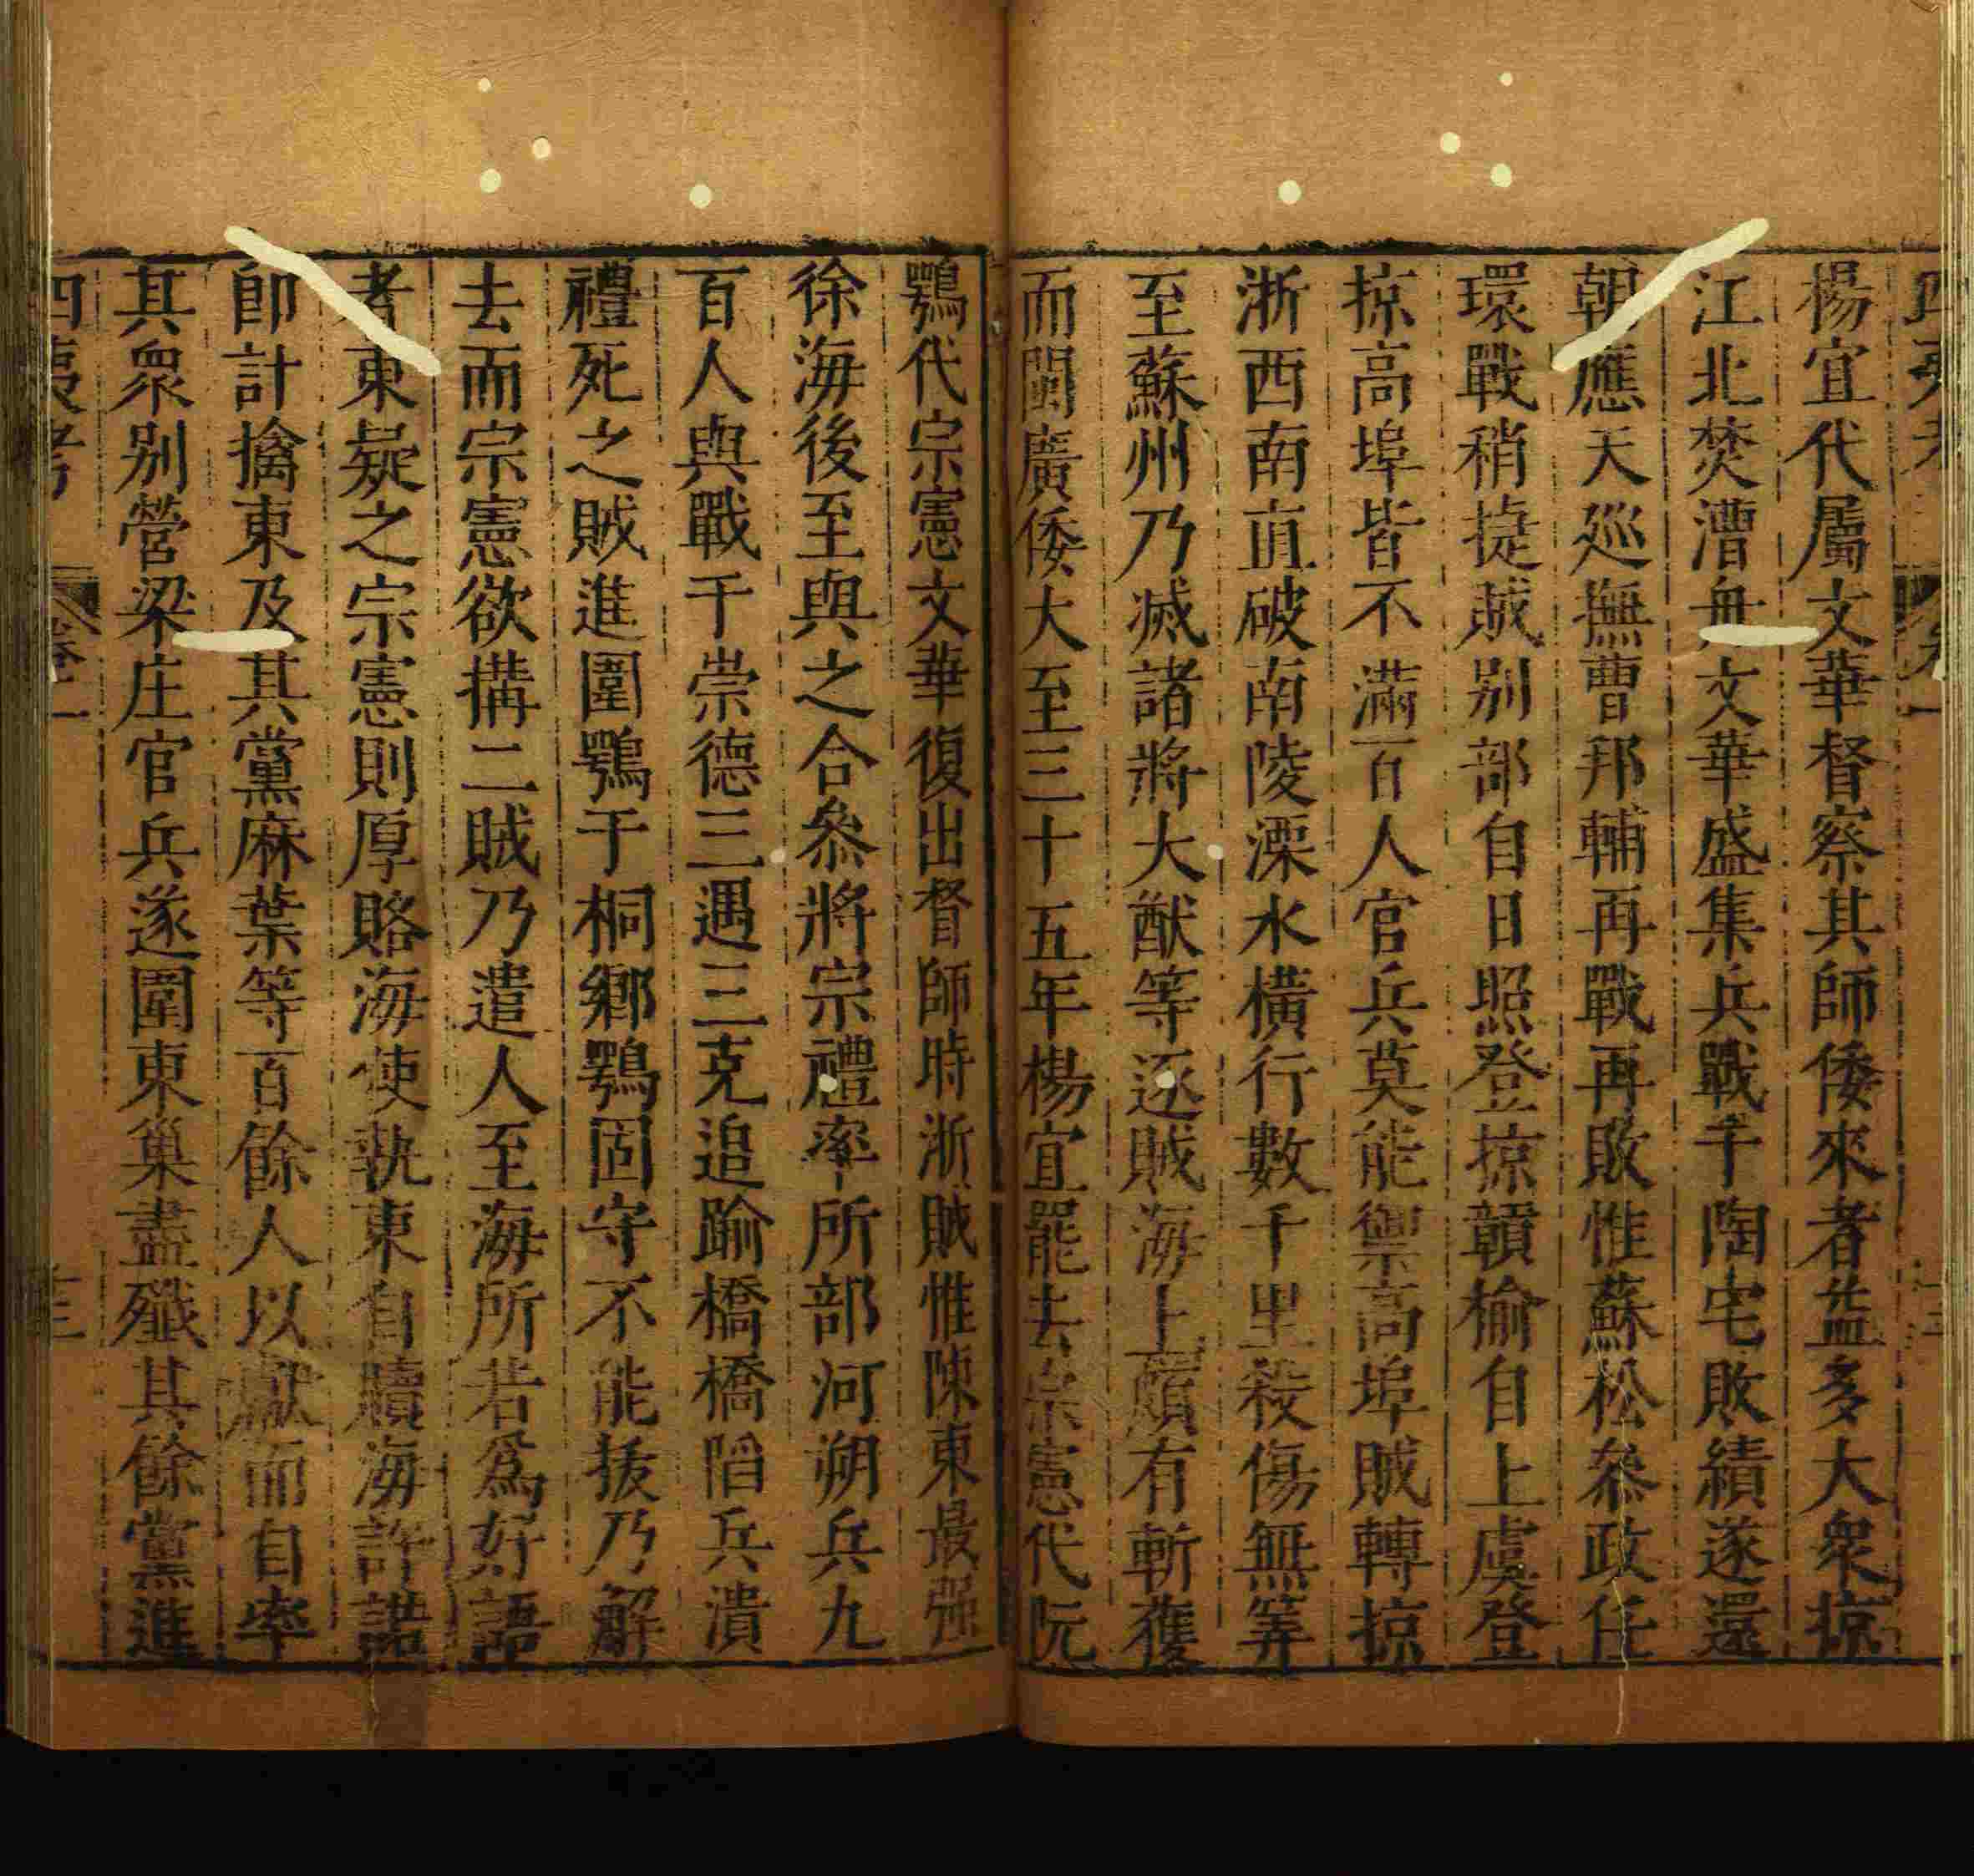 楊宜代屬文華督察其師倭來者益多大衆掠
江北焚漕舟文華盛集兵戰于陶宅敗績遂還
朝應天廵撫曹邦輔再戰再敗惟蘇松叅政任
環戰稍捷賊别部自日照登掠贛榆自上虞登
掠高埠皆不滿百人官兵莫能禦高埠賊轉掠
浙西南直破南陵溧水橫行數千里殺傷無筭
至蘇州乃滅諸將大猷等逐賊海上頗有斬獲
而閩廣倭大至三十五年楊宜罷去宗憲代阮
鶚代宗憲文華復出督師時浙賊惟陳東最强
徐海後至與之合叅將宗禮率所部河朔兵九
百人與戰于崇德三遇三克追踰橋橋陷兵潰
禮死之賊進圍鶚于桐鄉鶚固守不能拔乃解
去而宗憲欲搆二賊乃遣人至海所若爲好語
者東疑之宗憲則厚賂海使執東自贖海許諾
卽計擒東及其黨麻葉等百餘人以獻而自率
其衆别營梁庄官兵遂圍東巢盡殲其餘黨進
四夷考 卷一